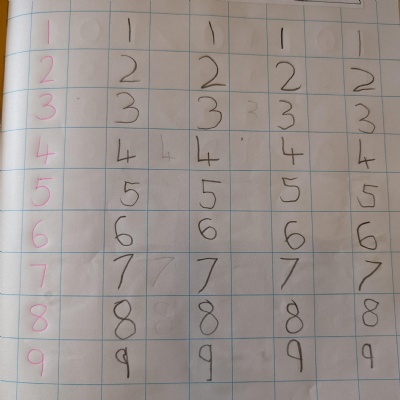 1 1 1 1 1
2 2 2 2 2
3 3 3 3 3
4 4 4 4 4
5 5 5 5 5
6 6 6 6 6
7 7 7 7 7
8 8 8 8 8
9 9 9 9 9